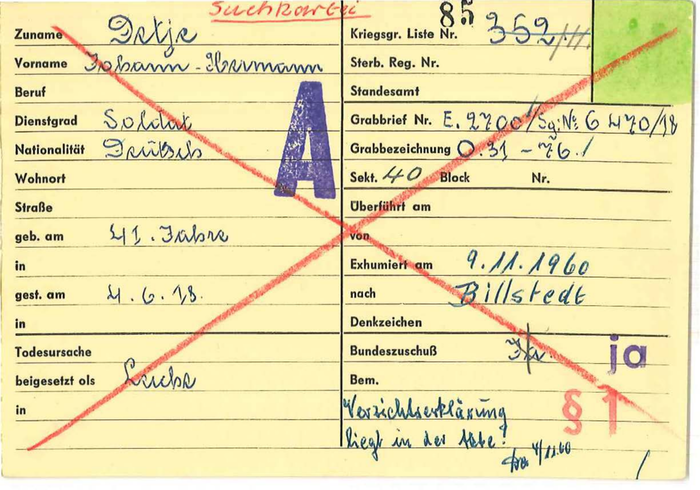 Suchkartei
Zuname Detje
Vorname Johann-Hermann
Beruf
Dienstgrad Soldat
Nationalität Deutsch
Wohnort
Straße
geb. am 41. Jahre
in
gest. am 4.6.18.
in
Todesursache
beigesetzt als Leiche
in
A
85
Kriegsgr. Liste Nr. 352/III.
Sterb. Reg. Nr.
Standesamt
Grabbrief Nr. E. 2700/Sg: No 6470/18
Grabbezeichnung O.31-76./
Sekt. 40 Block Nr.
Überführt am
von
Exhumiert am 9.11.1960
nach Billstedt
Denkzeichen
Bundeszuschuß ja
Bem.
§ 1
Verzichtserklärung
liegt in der Akte!
4/11.60